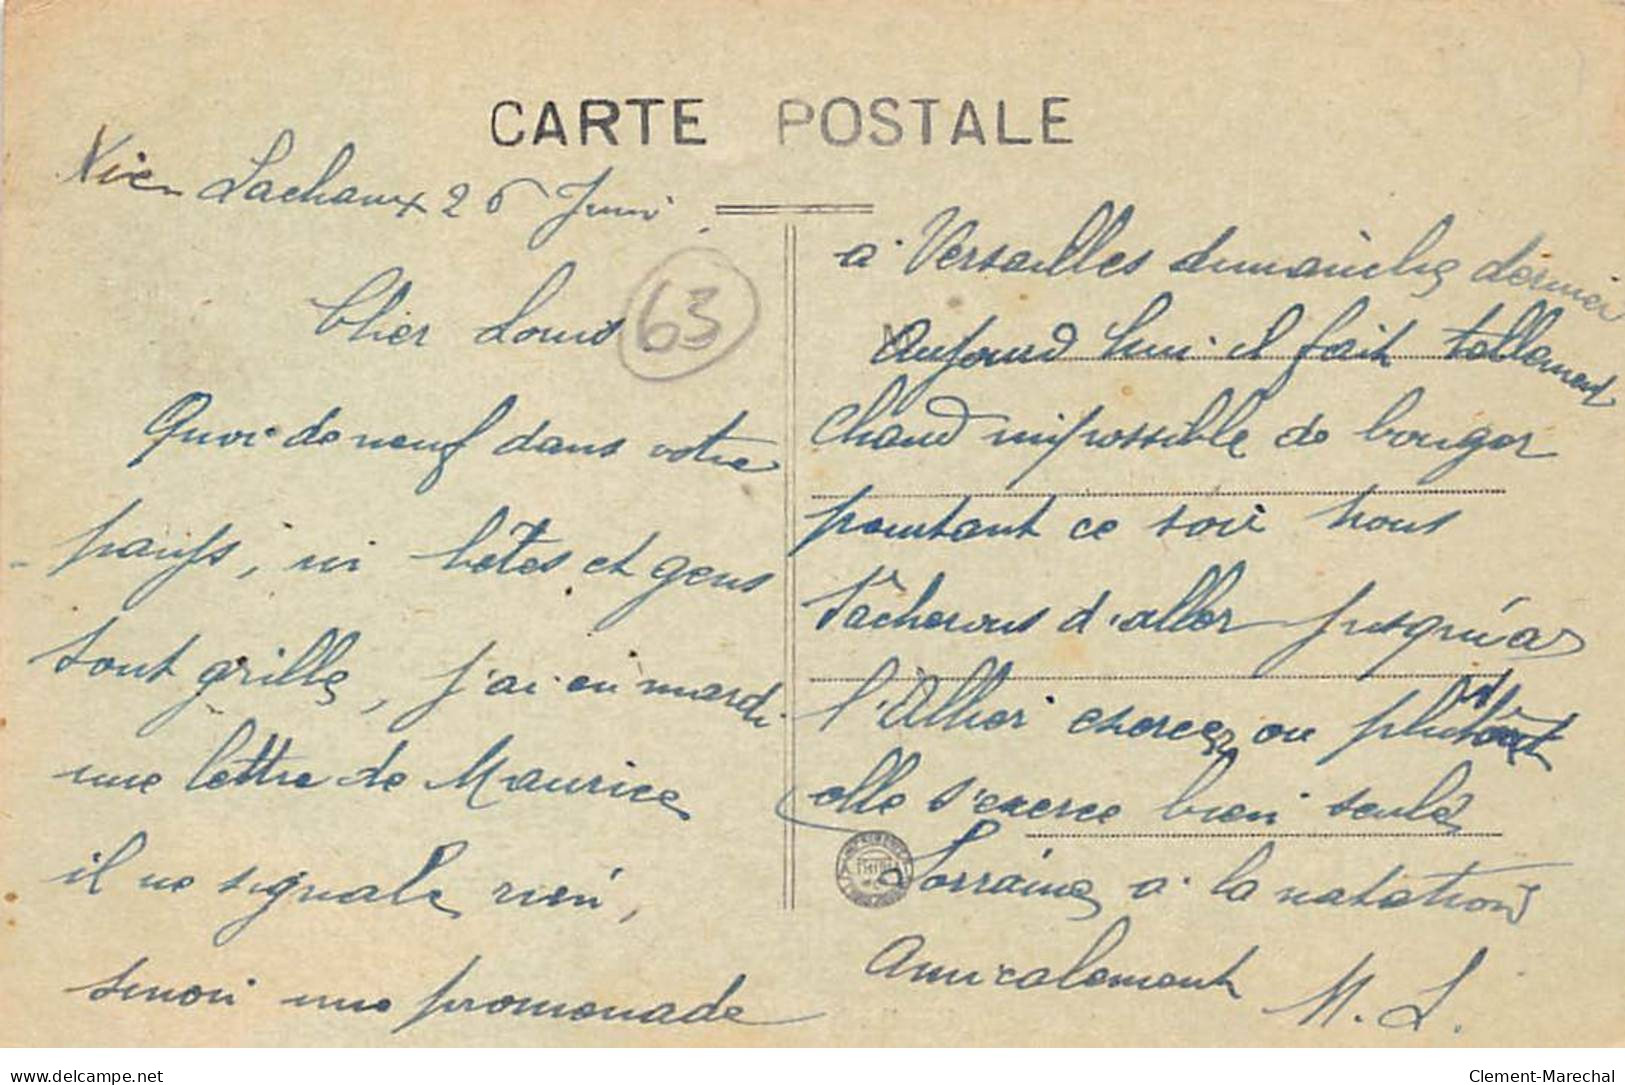 CARTE POSTALE
Lachaux 26 Juin
Cher Louis
63
Quoi de neuf dans votre
pays, ici bêtes et gens
sont grillés, j'ai eu mardi
une lettre de Maurice
il ne signale rien,
sinon une promenade
à Versailles dimanche dernier
Aujourd'hui il fait tellement
chaud impossible de bouger
pourtant ce soir nous
tâcherons d'aller jusqu'à
l'Allier exercer ou plutôt
elle s'exerce bien seule
Lorraine à la natation
Amicalement M. L.
delcampe.net
Clement-Marechal